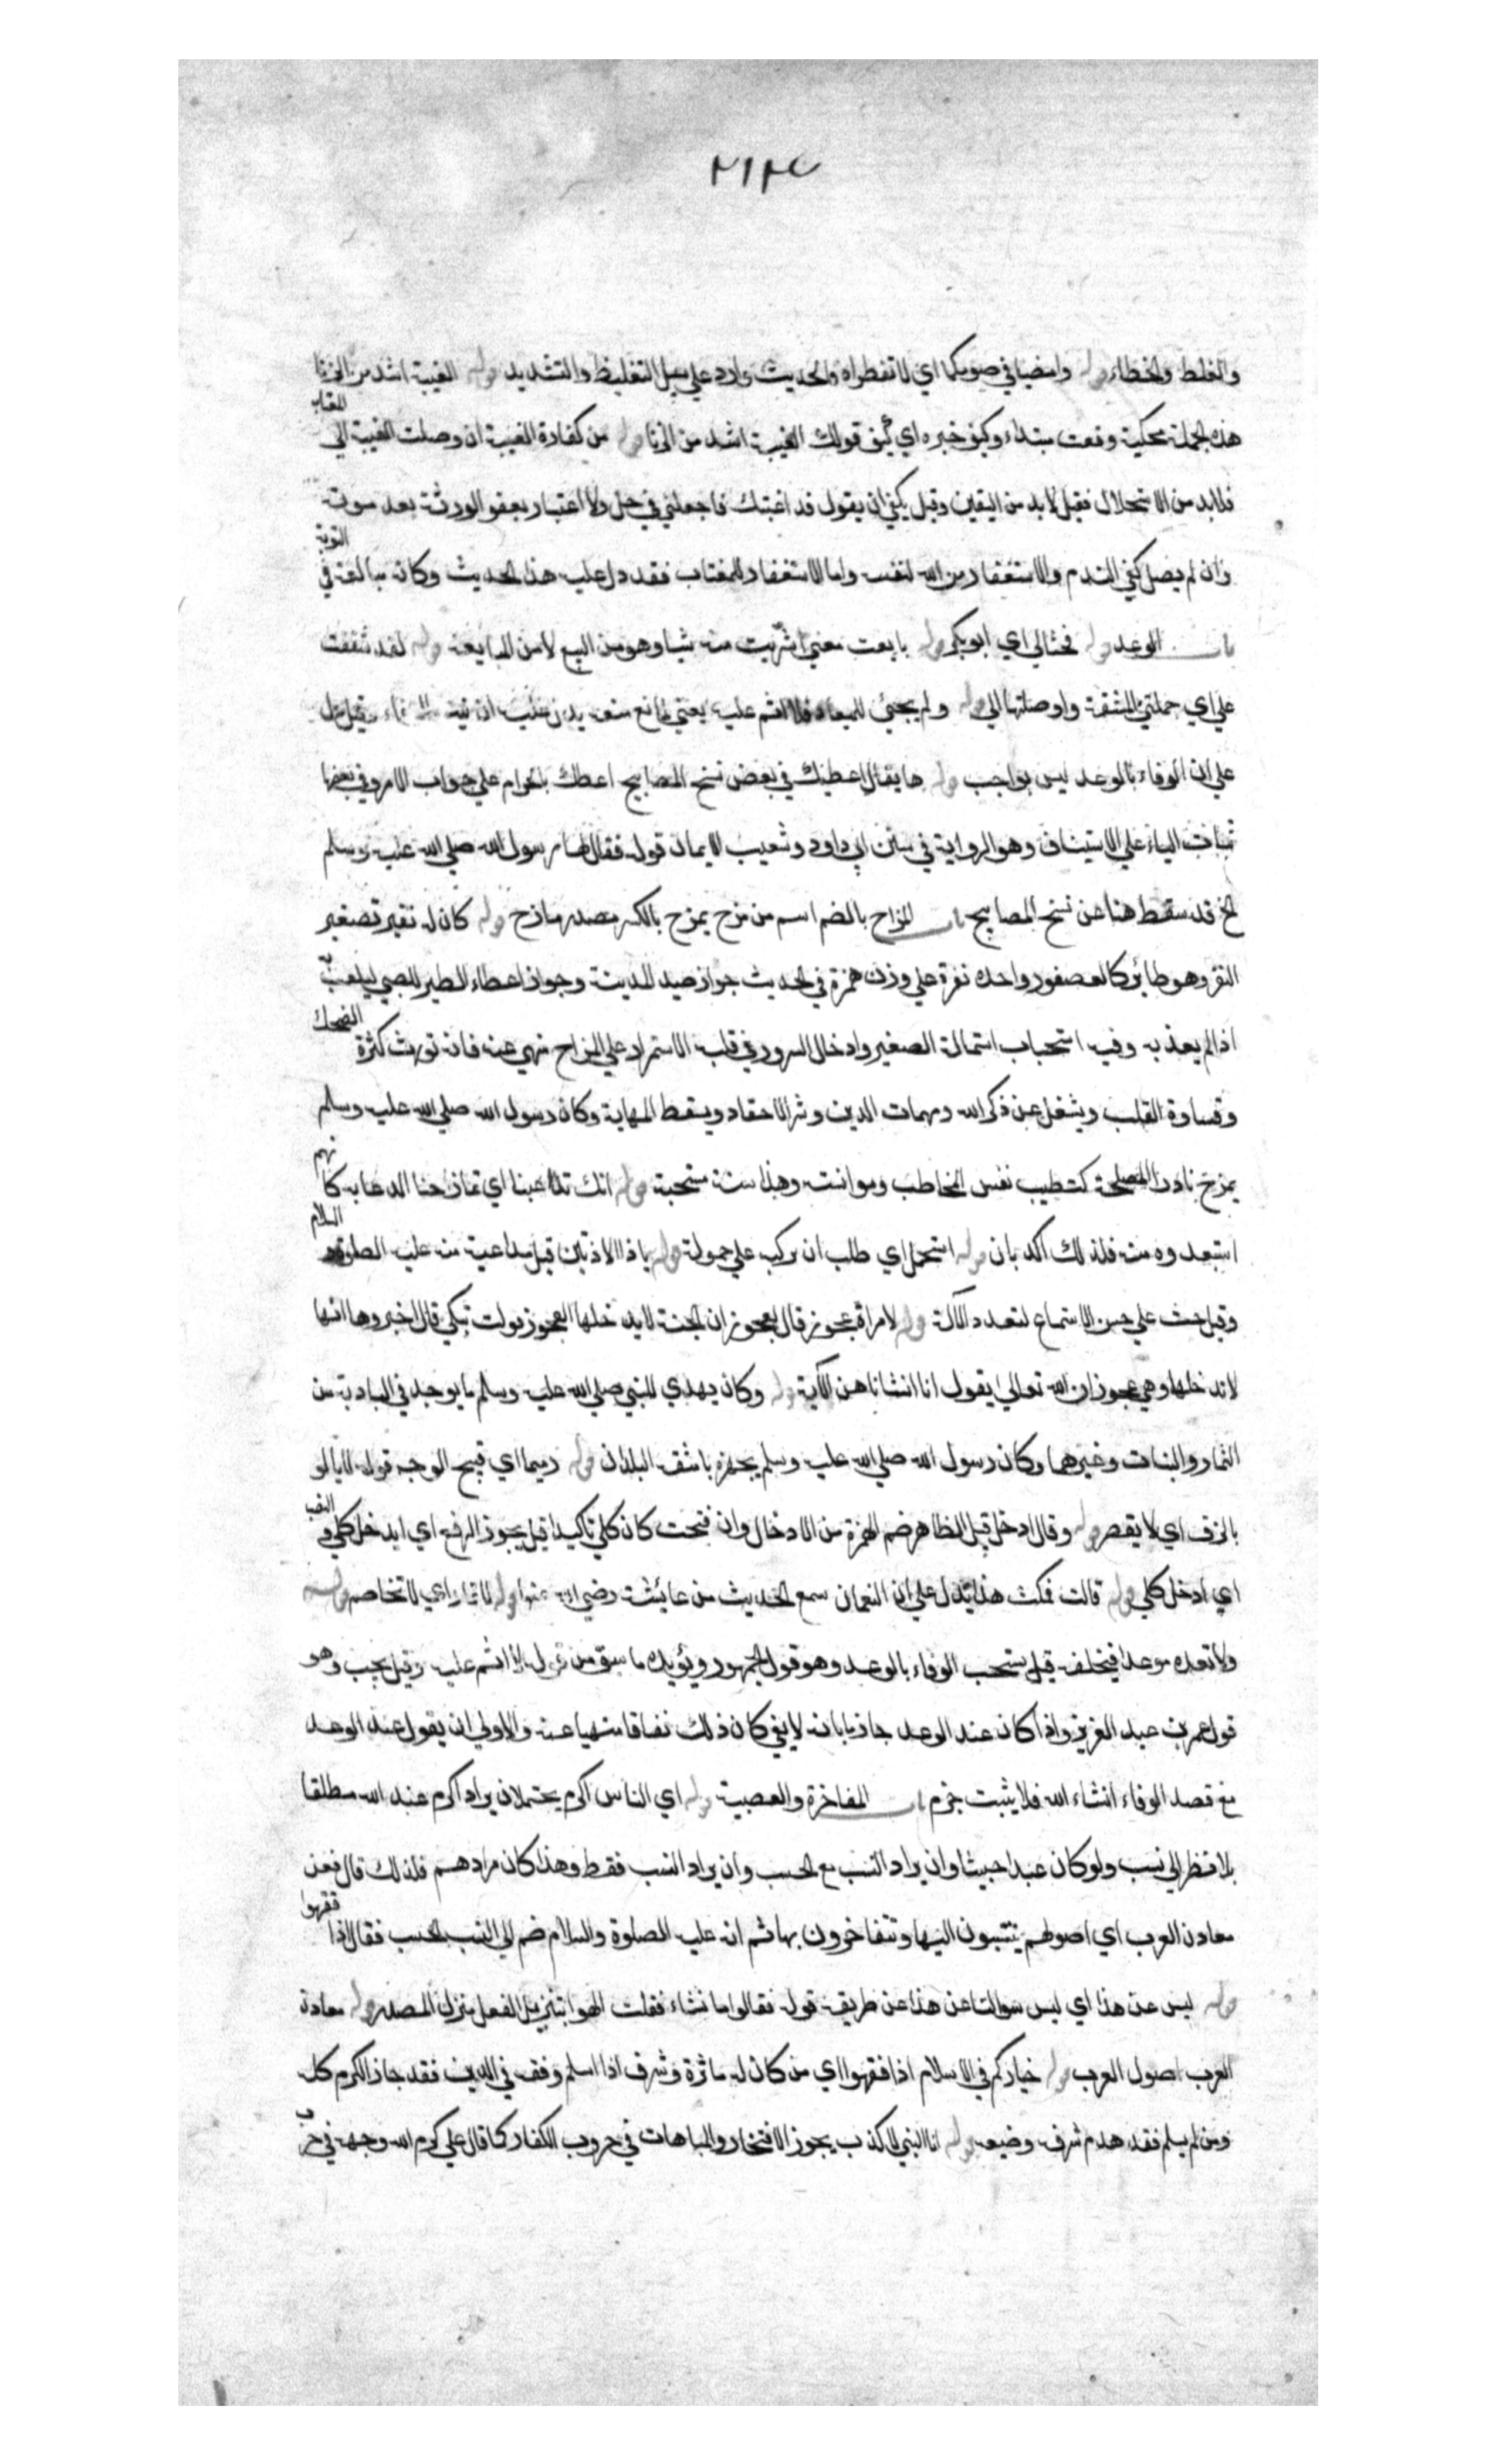 ٢١٢٧
والغلط والخطاء قوله وامضيا في صومكما اي لا تفطراه والحديث وارد علي سبيل التغليظ والتشديد قوله الغيبة اشد من الزنا
هذه الجملة محكية وقعت مبتداء وكيف خبره اي كيف قولك الغيبة اشد من الزنا قوله من كفارة الغيبة ان وصلت الغيبة الي المغتاب
فلابد من الاستحلال فقيل لابد من اليقين وقيل يكفي ان يقول قد اغتبتك فاجعلني في حل ولا اعتبار بعفو الورثة بعد موته
وان لم يصل كفي الندم والاستغفار من الله لنفسه واما الاستغفار للمغتاب فقد دل عليه هذا الحديث وكانه مبالغة في التوبة
باب الوعد قوله فحثا لي اي ابو بكر قوله بايعت معني اشتريت منه شيا وهو من البيع لا من المبايعة قوله لقد شققت
علي اي حملتني المشقة واوصلتها الي قوله ولم يجئ للميعاد فلا اثم عليه يعني لمانع منعه
علي ان الوفاء بالوعد ليس بواجب قوله ها تعال اعطيك في بعض نسخ المصابيح اعطك بالجزم علي جواب الامر وفي بعضها
باثبات الياء علي الاستيناف وهو الرواية في سنن ابي داود وشعب الايمان قوله فقال لها رسول الله صلي الله عليه وسلم
الخ قد سقط هنا عن نسخ المصابيح باب المزاح بالضم اسم من مزح يمزح بالكسر مصدر مازح قوله كان له نغير تصغير
النغر وهو طائر كالعصفور واحده نغرة علي وزن همزة في الحديث جواز صيد المدينة وجواز اعطاء الطير للصبي ليلعب به
اذا لم يعذبه وفيه استحباب استمالة الصغير وادخال السرور في قلبه الاستمرار علي المزاح منهي عنه فانه يورث كثرة الضحك
وقساوة القلب ويشغل عن ذكر الله ومهمات الدين وثر الاحقاد ويسقط المهابة وكان رسول الله صلي الله عليه وسلم
يمزح نادرا لمصلحة كتطييب نفس المخاطب وموانسته وهذا سنة مستحبة قوله انك تداعبنا اي تمازحنا الدعابة كانهم
استبعدوه منه فلذلك اكد بان قوله استحمل اي طلب ان يركب علي حمولة قوله يا ذا الاذنين قيل مداعبة منه عليه الصلوة السلام
وقيل حث علي حسن الاستماع لتعدد الآلة قوله لامراة عجوز قال لعجوز ان الجنة لا يدخلها العجوز فولت تبكي قال اخبروها انها
لا تدخلها وهي عجوز ان الله تعالي يقول انا انشاناهن الآية قوله وكان يهدي للنبي صلي الله عليه وسلم ما يوجد في البادية من
الثمار والنبات وغيرهما وكان رسول الله صلي الله عليه وسلم يجهزه باشف البلدان قوله دميما اي قبيح الوجه قوله لا يالو
بالزق اي لا يقصر قوله وقال ادخل قيل الظاهر ضم الهمزة من الادخال وان فتحت كان كلي تاكيدا قيل يجوز الرفع اي ايدخل كلي والنصب
اي ادخل كلي قوله قالت فمكث هذا يدل علي ان النعمان سمع الحديث من عائشة رضي الله عنها قوله لا تمار اي لا تخاصم قوله
ولا تعده موعدا فتخلفه قيل يستحب الوفاء بالوعد وهو قول الجمهور ويؤيده ما سبق من قوله فلا اثم عليه وقيل يجب وهو
قول عمر بن عبد العزيز واذا كان عند الوعد جازما بانه لا يفي كان ذلك نفاقا منهيا عنه والاولي ان يقول عند الوعد
مع قصد الوفاء انشاء الله فلا يثبت جزم باب المفاخرة والعصبية قوله اي الناس اكرم يحتمل ان يراد اكرم عند الله مطلقا
بلا نظر الي نسب ولو كان عبدا حبيشا وان يراد النسب مع الحسب وان يراد النسب فقط وهذا كان مرادهم فلذلك قال فعن
معادن العرب اي اصولهم ينتسبون اليها وتتفاخرون بها ثم انه عليه الصلوة والسلام ضم الي النسب الحسب فقال اذا فقهوا
قوله ليس عن هذا اي ليس سوالنا عن هذا عن طريقة قوله فقالوا ما نشاء فقلت الهو بتنزيل الفعل منزلة المصدر قوله معادن
العرب اصول العرب قوله خياركم في الاسلام اذا فقهوا اي من كان له ماثرة وشرف اذا اسلم وفقه في الدين فقد حاز الكرم كله
ومن لم يسلم فقد هدم شرفه وضيعه قوله انا النبي لا كذب يجوز الافتخار والمباهات في حروب الكفار كما قال علي كرم الله وجهه في حرب